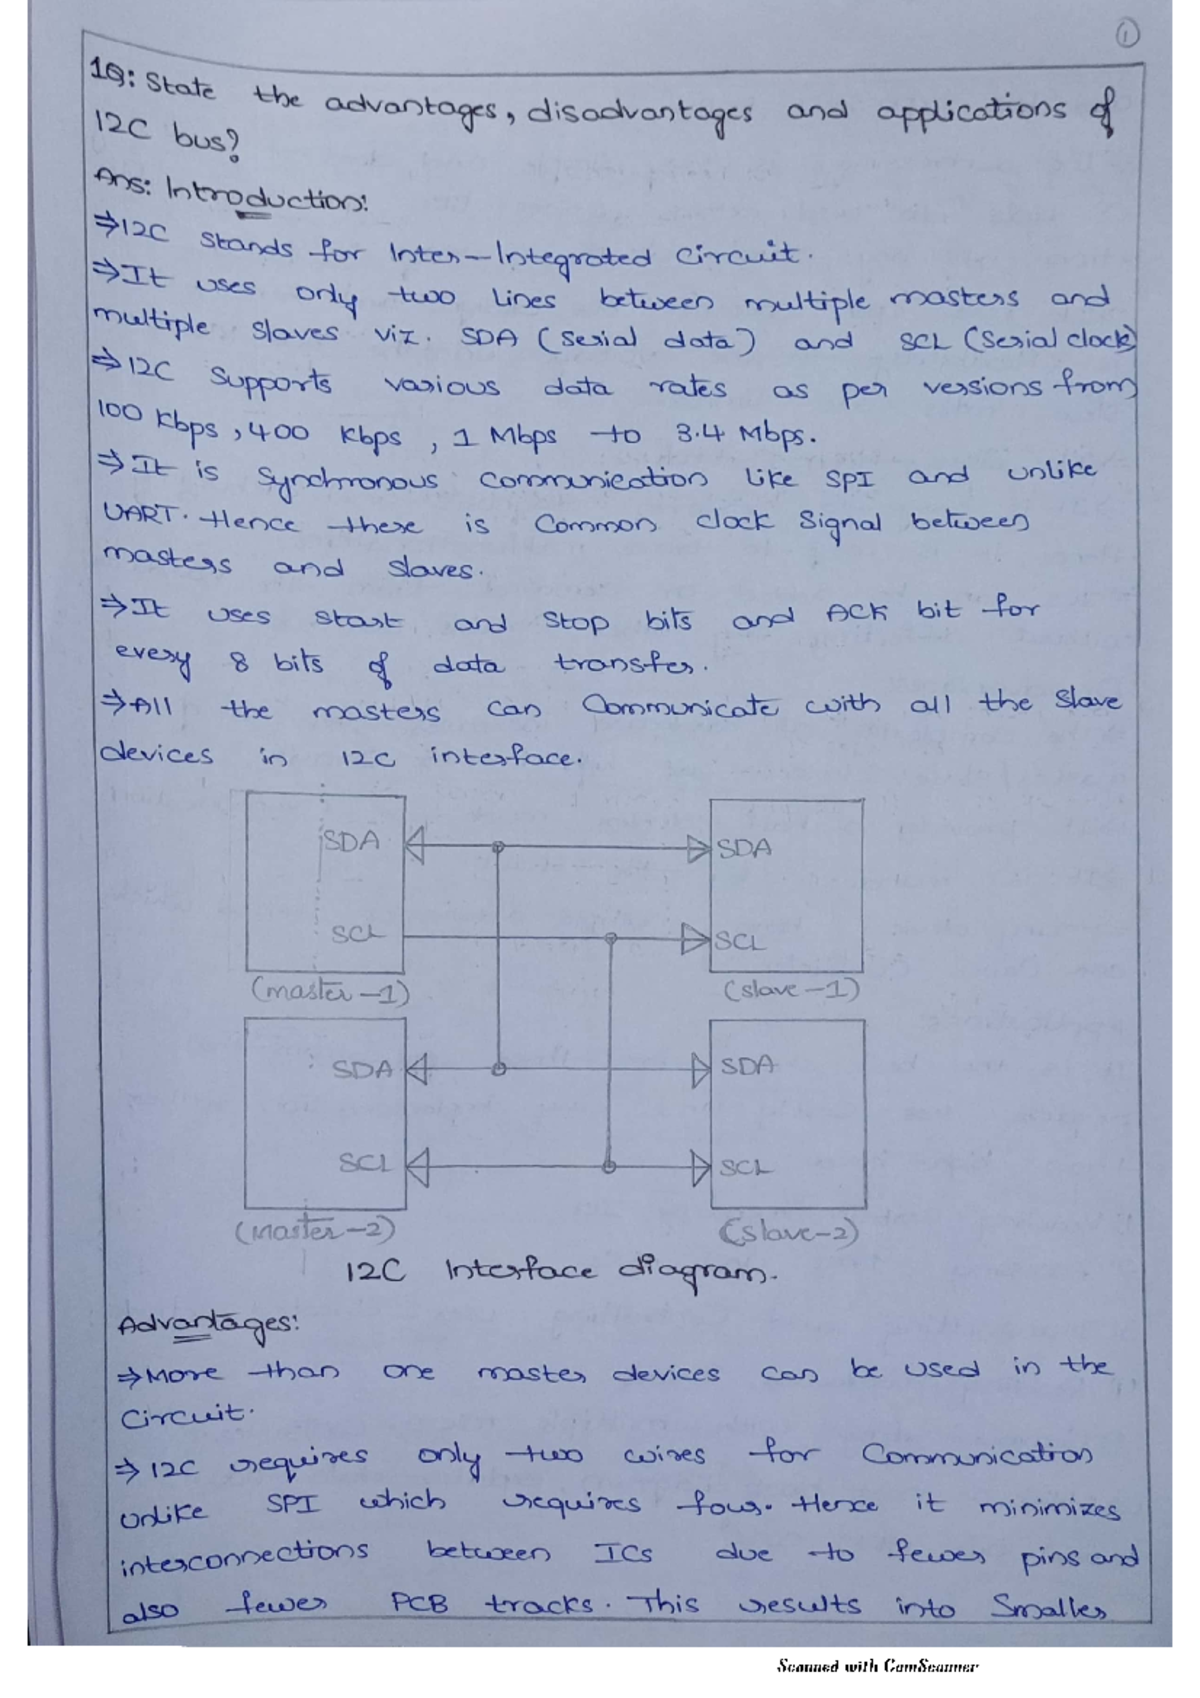 1
1Q: State the advantages, disadvantages and applications of
I2C bus?
Ans: Introduction:
⇒I2C stands for Inter-Integrated Circuit.
⇒It uses only two lines between multiple masters and
multiple slaves viz. SDA (Serial data) and SCL (Serial clock)
⇒I2C Supports various data rates as per versions from
100 Kbps, 400 Kbps, 1 Mbps to 3.4 Mbps.
⇒It is Synchronous communication like SPI and unlike
UART. Hence there is Common clock Signal between
masters and slaves.
⇒It uses start and stop bits and ACK bit for
every 8 bits of data transfer.
⇒All the masters can Communicate with all the Slave
devices in I2C interface.
SDA SDA
SCL SCL
(master-1) (slave-1)
SDA SDA
SCL SCL
(master-2) (slave-2)
I2C Interface diagram.
Advantages:
⇒More than one master devices can be used in the
Circuit.
⇒I2C requires only two wires for Communication
unlike SPI which requires four. Hence it minimizes
interconnections between ICs due to fewer pins and
also fewer PCB tracks. This results into Smaller
Scanned with CamScanner